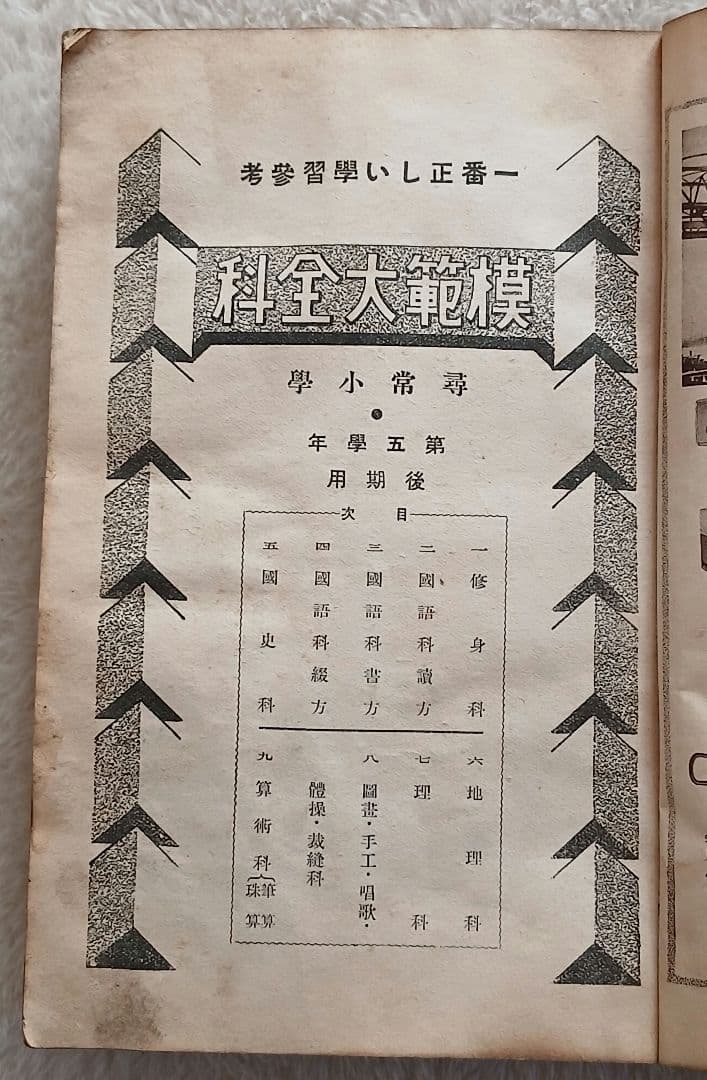 一番正しい學習參考
模範大全科
尋常小學
第五學年
後期用
目次
一 修身科
二 國語科讀方
三 國語科書方
四 國語科綴方
五 國史科
六 地理科
七 理科
八 圖畫・手工・唱歌・
體操・裁縫科
九 算術科{筆算
珠算